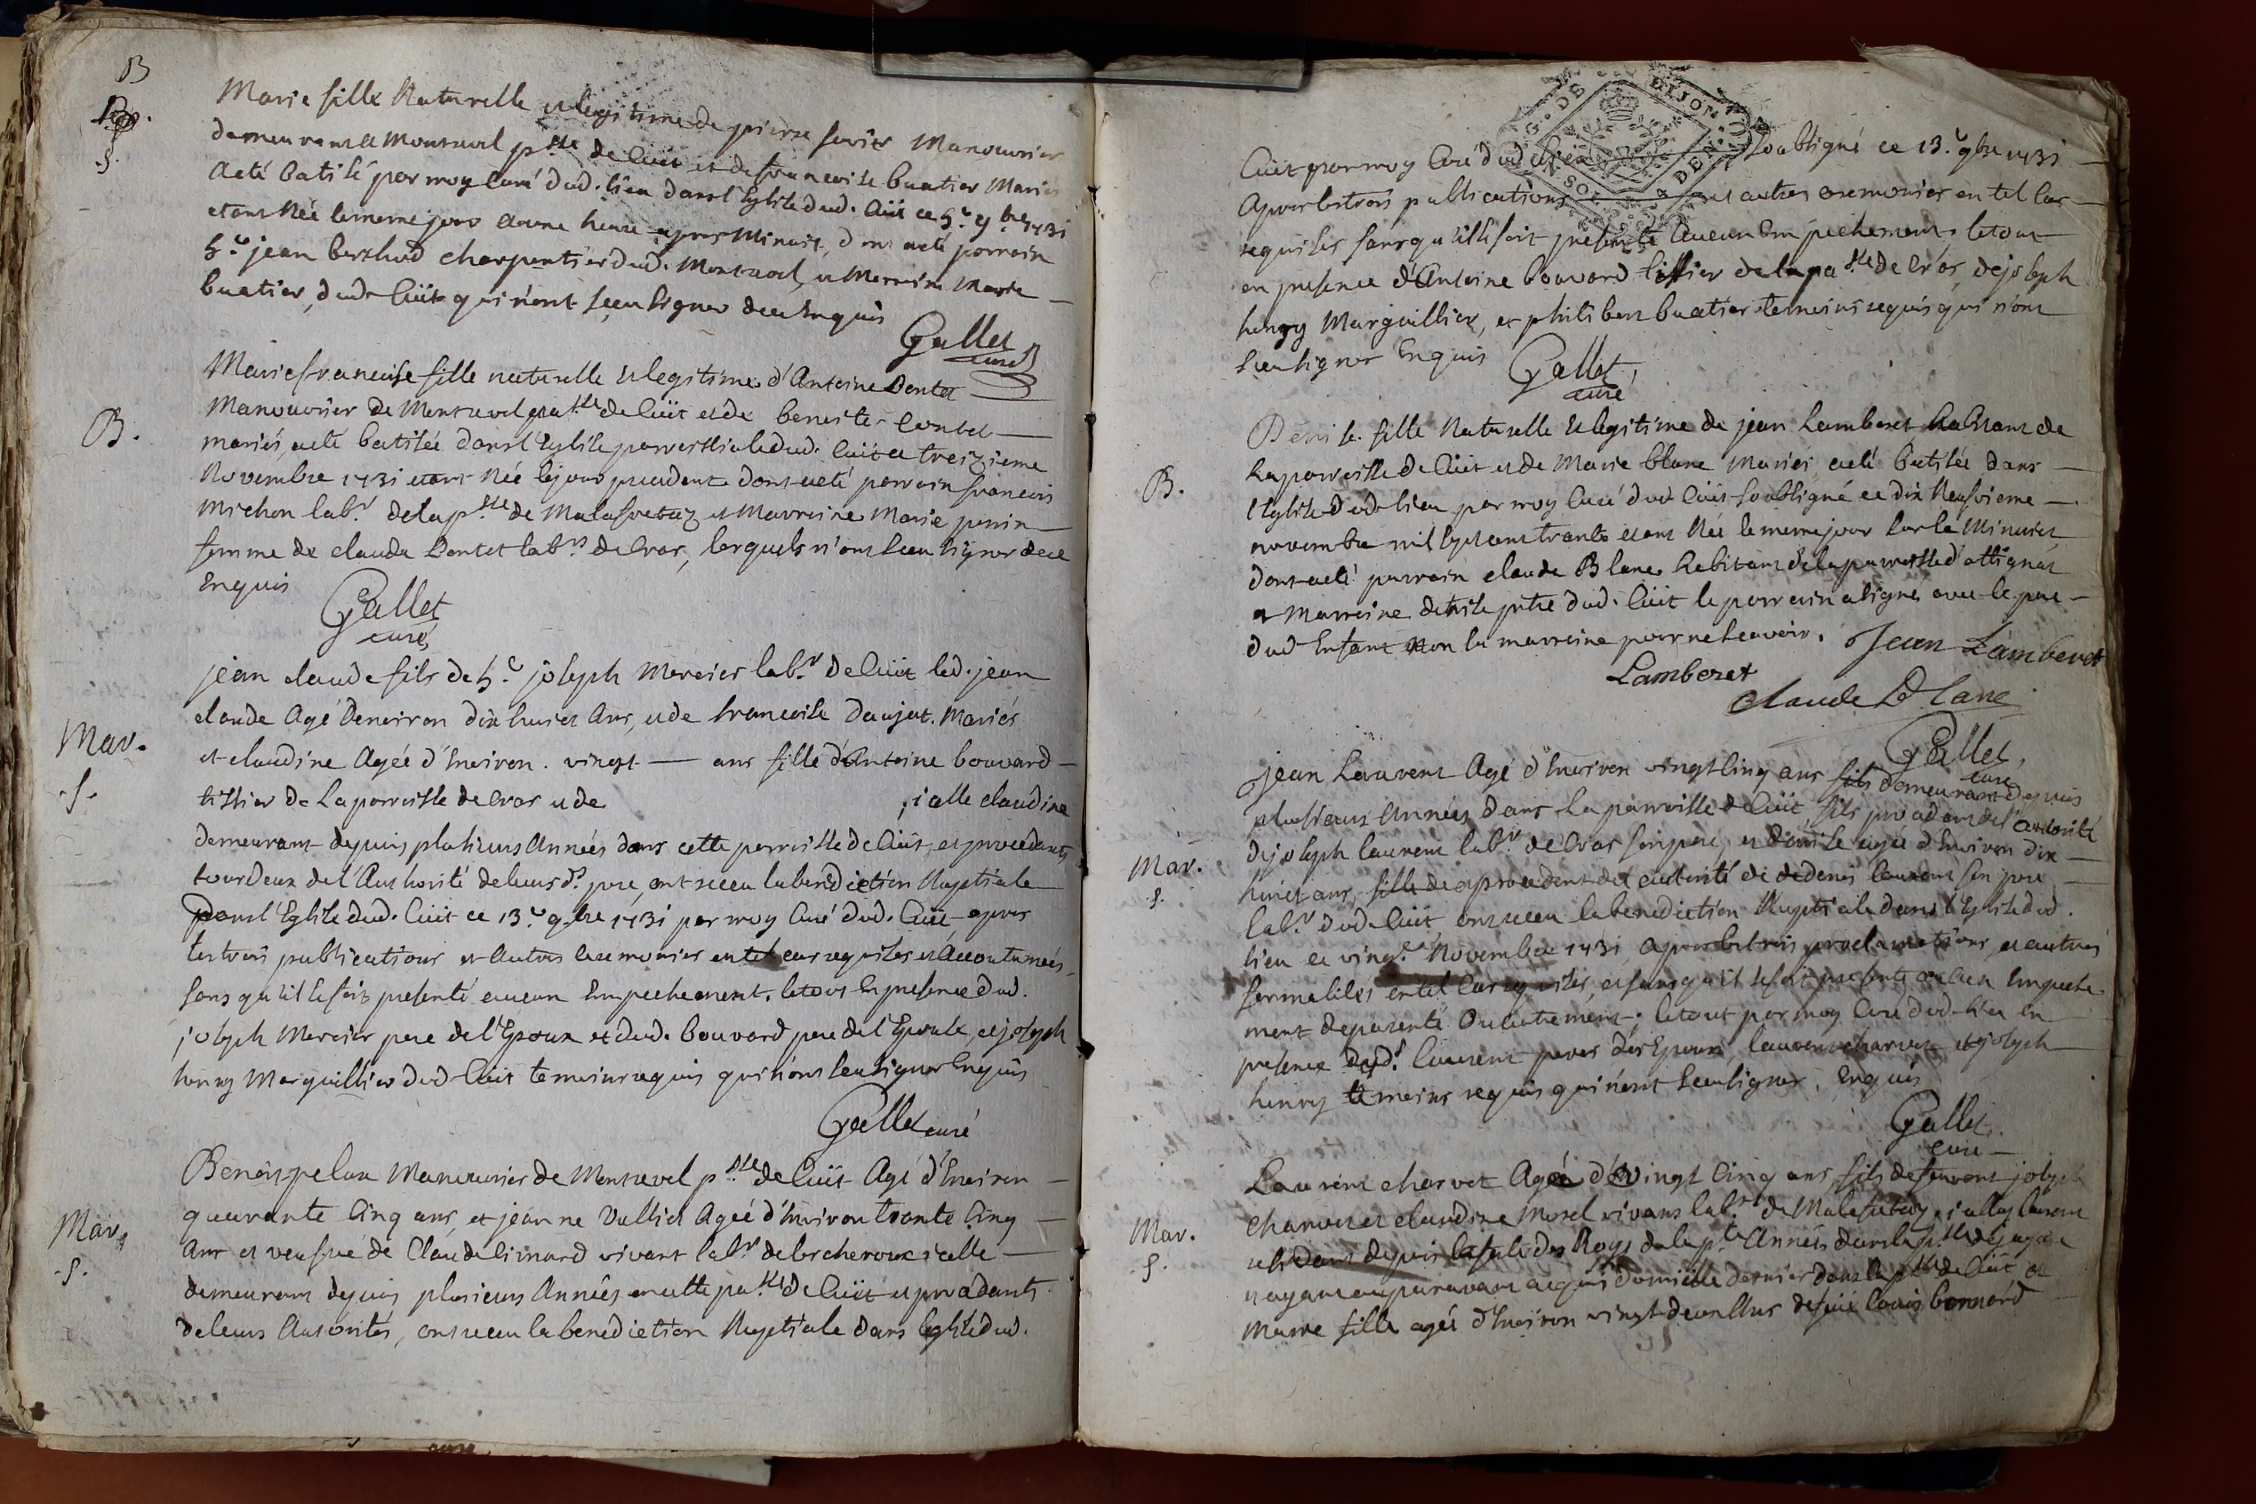 B
Marie fille Naturelle et legitime de pierre favier Manouvrier
demeurant a Montrevel p.sse de Cuët et de francoise buatier Mariés
a eté batisé par moy Curé dud. lieu dans l'Eglise dud. Cüit ce 5.e 9.bre 1731
etant Née le meme jour a une heure apres Minuit, dont a eté parrain
h.e jean berthud charpentier dud. Montrevel, et Marraine Marie
buatier, dud. Cüit qui n'ont sceu signer de ce Enquis
Gallet
curé
B.
Marie francoise fille naturelle et legitime d'Antoine Dontet
Manouvrier de Montrevel pa.sse de Cüit et de beneiste Contet
mariés, a eté batisée dans l'Eglise parroissiale dud. Cüit ce treizieme
Novembre 1731 etant Née le jour precedent dont a eté parrain francois
Michon lab.r de la p.sse de Malafretaz et Marraine Marie perrin
femme de claude Dontet lab.r de Cras, lesquels n'ont sceu signer de ce
Enquis
Gallet
curé
Mar.
S.
jean claude fils de h.e joseph Mercier lab.r de Cüit led. jean
claude Agé Denviron dix huict Ans, et de francoise Daujat Mariés
et claudine Agée d'Environ vingt ans fille d'Antoine bouvard
tissier de La parroisse de Cras et de ; icelle claudine
demeurant depuis plusieurs Années dans cette parroisse de Cüit, et procedants
tous deux de l'Authorité de leurs d. pere, ont receu la benediction Nuptiale
Dans l'Eglise dud. Cüit ce 13.e 9.bre 1731 par moy Curé dud. Cüit, apres
les trois publications et Autres ceremonies en tel cas requises et Accoutumées,
sans qu'il se soit presenté aucun Empechement. le tout En presence dud.
joseph Mercier pere de l'Epoux et dud. bouvard pere de l'Epouse, et joseph
henry Marguillier dud. Cüit temoins requis qui n'ont sceu signer Enquis
Gallet curé
Mar.
S.
Benoist pelux Manouvrier de Montrevel p.sse de Cüit Agé d'Environ
quarante Cinq ans, et jeanne Vulliet Agée d'Environ trente Cinq
Ans et veufve de Claude vivant lab.r icelle
demeurant depuis plusieurs Années en cette pa.sse de Cüit et procedants
de leurs Autorités, ont receu la benediction Nuptiale dans l'eglise dud.
G. DE DIJON
Cüit par moy Curé dud. soubsigné ce 13.e 9.bre 1731
Apres les trois publications et autres ceremonies en tel cas
requises sans qu'il se soit presenté aucun Empechement. le tout
en presence d'Antoine bouvard tissier de la pa.sse de Cras, de joseph
henry Marguillier, et philibert buatier temoins requis qui n'ont
sceu signer Enquis
Gallet
curé
B.
Denise fille Naturelle et legitime de jean Lamberet habitant de
la parroisse de Cüit et de Marie blanc Mariés, a eté batisée dans
l'Eglise dud. lieu par moy Curé dud. Cüit soubsigné ce dix Neufvieme
novembre mil sept cent trente etant Née le meme jour sur le Minuict
dont a eté parrain claude Blanc habitant de la parroisse d'attignat
et Marraine denise dud. Cüit le parrain a signé avec le pere
dud. Enfant Non la marraine pour ne scavoir.
Jean Lamberet
Lamberet
claude Blanc
Gallet
curé
Mar.
S.
Jean Laurent Agé d'Environ vingt Cinq ans fils demeurant depuis
plusieurs Années dans la parroisse de Cüit, fils procedant de l'autorité
de joseph laurent lab.r de Cras son pere, et denise agée d'Environ dix
huict ans, fille de et procedent de l'autorité de denis laurent son pere
lab.r dud. Cüit, ont receu la benediction Nuptiale dans l'Eglise dud.
lieu ce vingt Novembre 1731 apres les trois proclamations, et autres
formalités en tel Cas requises, et sans qu'il se soit presenté aucun Empeche-
ment de parenté ou autrement; le tout par moy Curé dud. lieu En
presence desd. laurent peres des Epoux, laurent charvet et joseph
henry temoins requis qui n'ont sceu signer, Enquis
Gallet
curé
Mar.
S.
Laurent charvet Agé d' vingt Cinq ans fils de feu vivant joseph
charvet et claudine Morel vivant lab.r de Malafretaz, icelluy laurent
residant depuis la feste des Roys de la p.te Année dans la p.sse de jayat
n'ayant auparavant acquis domicille dernier dans la p.sse de Cüit et
Marie fille agée d'Environ vingt deux Ans de feu louis bonnard